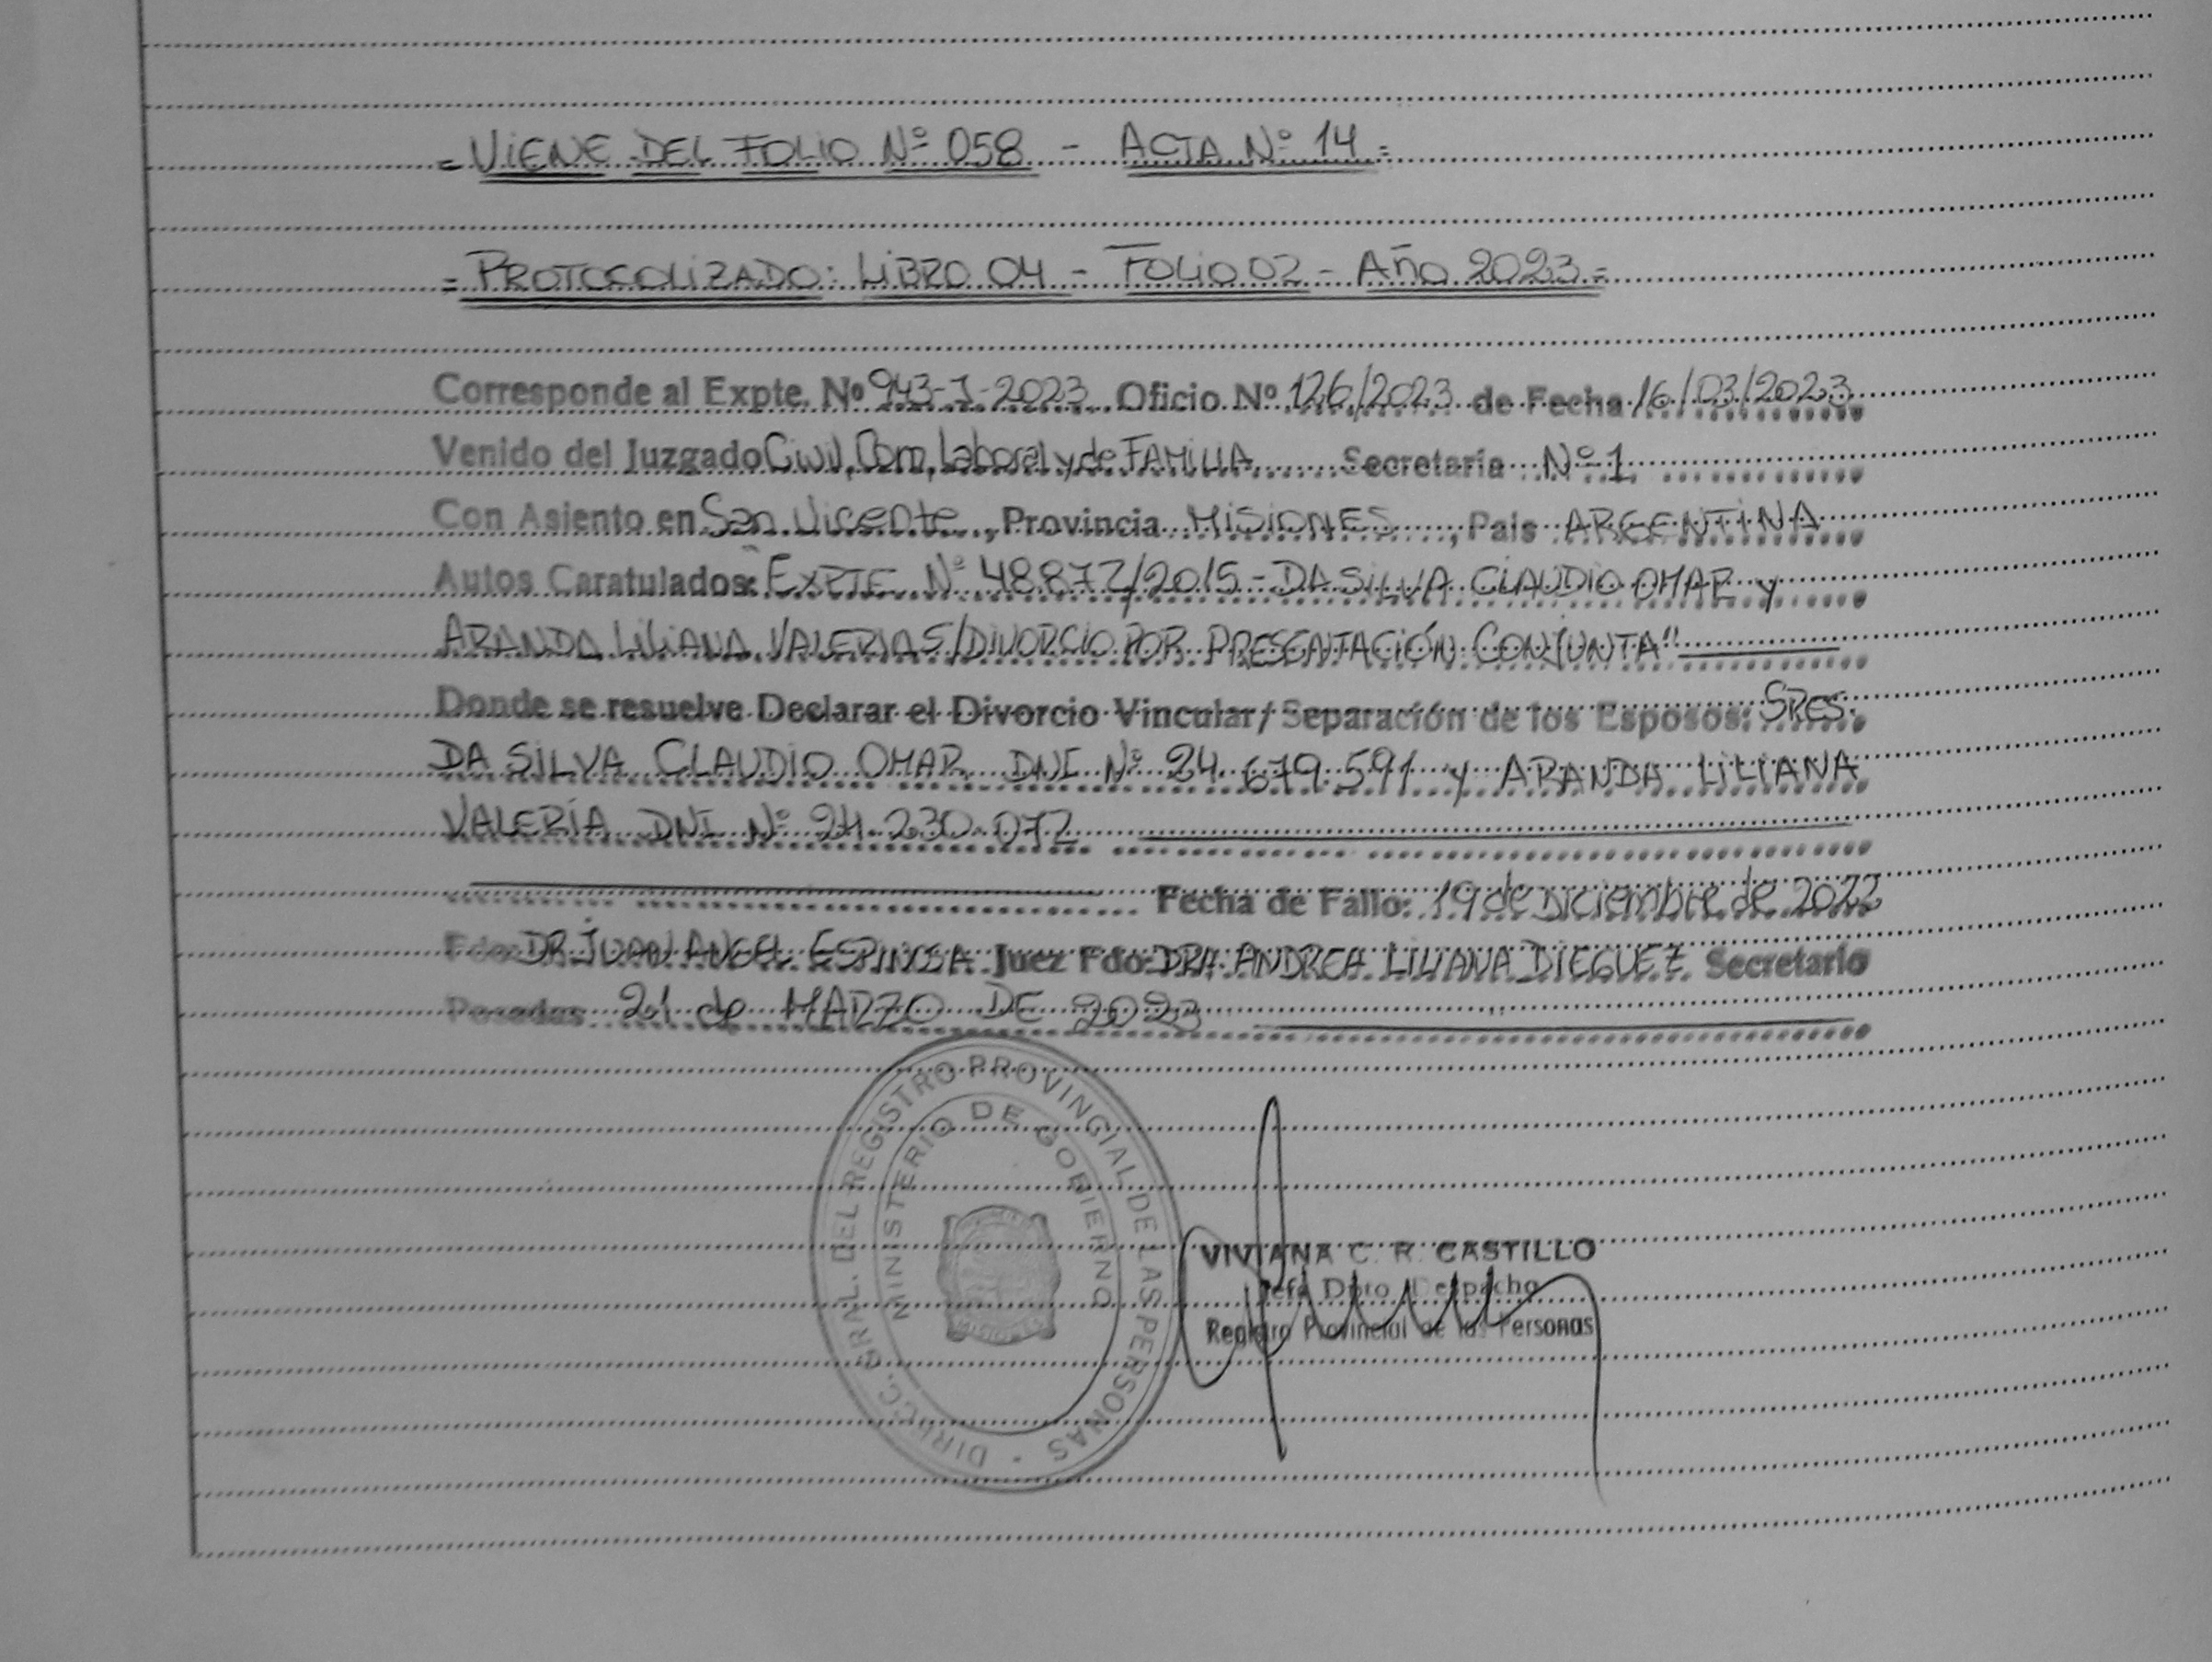 = VIENE DEL FOLIO Nº 058 - ACTA Nº 14 =
= PROTOCOLIZADO: LIBRO 04 - FOLIO 02 - AÑO 2023 =
Corresponde al Expte. Nº 943-J-2023 Oficio Nº 126/2023 de Fecha 16/03/2023
Venido del Juzgado Civil, Com, Laboral y de FAMILIA Secretaría Nº 1
Con Asiento en San Vicente, Provincia MISIONES, País ARGENTINA
Autos Caratulados: EXPTE Nº 48872/2015 - DA SILVA CLAUDIO OMAR y
ARANDA LILIANA VALERIA S/DIVORCIO POR PRESENTACIÓN CONJUNTA"
Donde se resuelve Declarar el Divorcio Vincular/ Separación de los Esposos: SRES.
DA SILVA CLAUDIO OMAR DNI Nº 24.679.591 y ARANDA LILIANA
VALERÍA DNI Nº 24.230.072
Fecha de Fallo: 19 de Diciembre de 2022
Fdo: DR JUAN ANGEL ESPINOSA Juez Fdo: DRA. ANDREA LILIANA DIEGUEZ Secretario
Posadas 21 de MARZO DE 2023
DIRECC. GRAL. DEL REGISTRO PROVINCIAL DE LAS PERSONAS
MINISTERIO DE GOBIERNO
VIVIANA C. R. CASTILLO
Jefa Dpto Despacho
Registro Provincial de las Personas